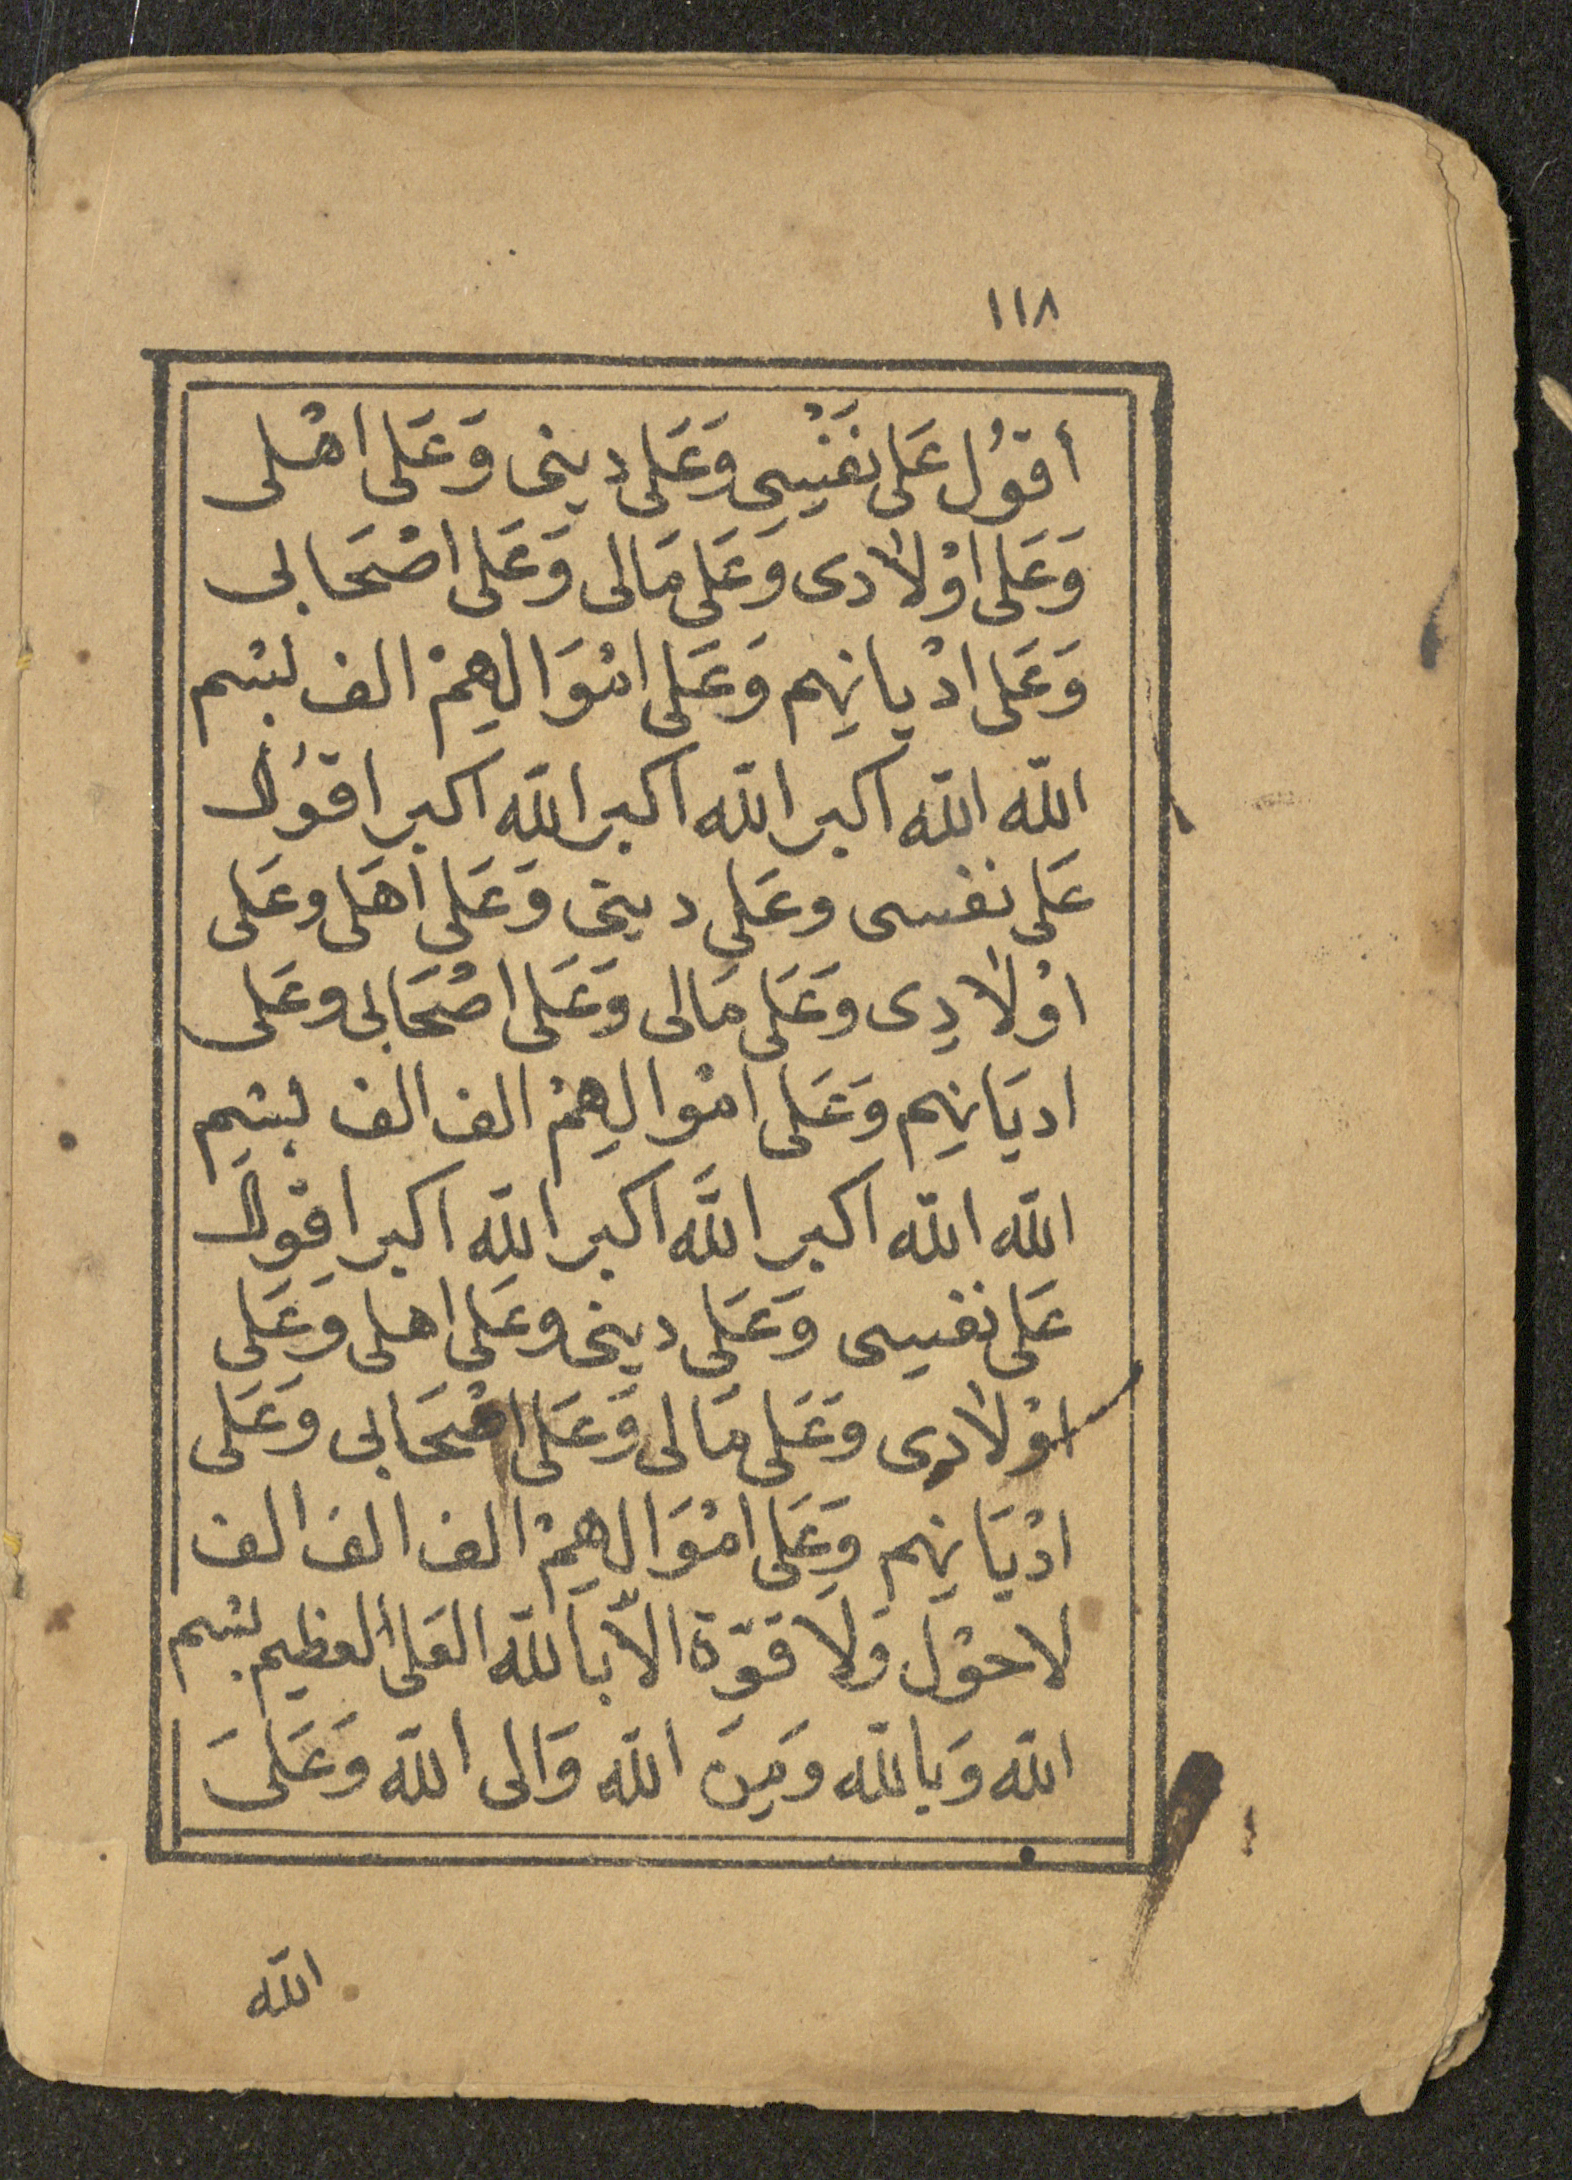 ١١٨
أقوُل عَلى نَفْسِى وَعَلى دينى وَعَلى اهْلى
وَعَلى اوْلادى وَعَلى مَالى وَعَلى اصْحَابى
وَعَلى ادْيانِهم وَعَلى امْوَالِهِمْ الف بسْم
الله الله اكبر الله اكبر الله اكبر اقوُل
عَلى نفسى وعَلى دينى وَعَلى اهَلى وعَلى
اوْلادِى وَعَلى مَالى وَعَلى اصْحَابى وعَلى
اديَانِهم وَعَلى امْوالِهِمْ الف الف بسْمِ
الله الله اكبر اللَّه اكبر الله اكبر اقوُل
عَلى نفسِى وَعَلى دينى وعَلى اهلى وَعَلى
اوْلادِى وَعَلى مَالى وَعَلى اصْحَابى وَعَلى
ادْيَانِهم وَعَلى امْوَالِهِمْ الف الف الف
لاحوْل وَلا قوّة الّا بالله العَلى العظيم بسْم
الله وَبالله وَمِنَ الله وَالى الله وَعَلىَ
الله